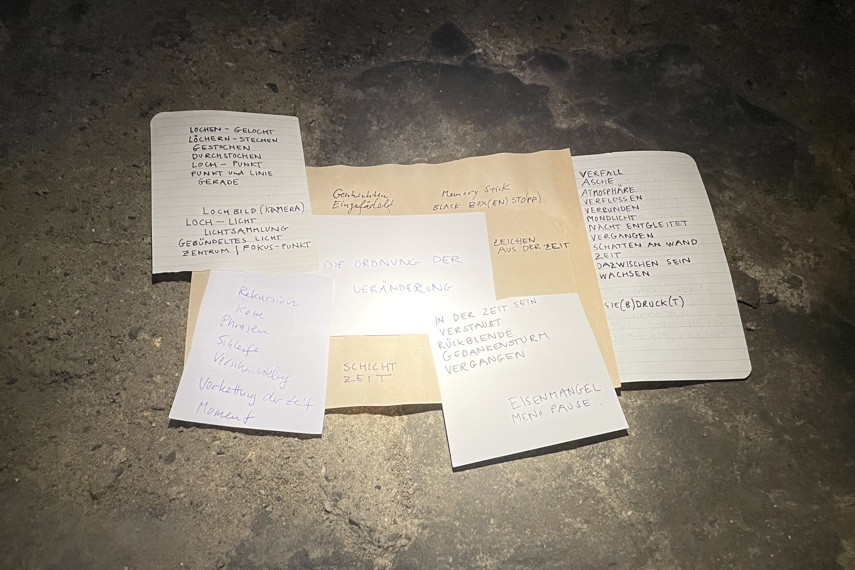 LOCHEN – GELOCHT
LÖCHERN – STECHEN
GESTOCHEN
DURCHSTOCHEN
LOCH – PUNKT
PUNKT UND LINIE
GERADE
LOCHBILD (KAMERA)
LOCH – LICHT
LICHTSAMMLUNG
GEBÜNDELTES LICHT
ZENTRUM / FOKUS-PUNKT
Geschichten
Eingefädelt
Memory Stick
BLACK BOX(EN) STOPP)
ZEICHEN
AUS DER ZEIT
DIE ORDNUNG DER
VERÄNDERUNG
SCHICHT
ZEIT
Rekursion
Kette
Phrasen
Schleife
Verkettung der Zeit
Moment
IN DER ZEIT SEIN
VERSTAUBT
RÜCKBLENDE
GEDANKENSTURM
VERGANGEN
EISENMANGEL
MENO PAUSE.
VERFALL
ASCHE
ATMOSPHÄRE
VERFLOSSEN
VERBUNDEN
MONDLICHT
NACHT ENTGLEITET
VERGANGEN
SCHATTEN AN WAND
ZEIT
DAZWISCHEN SEIN
WACHSEN
SIE(B)DRUCK(T)